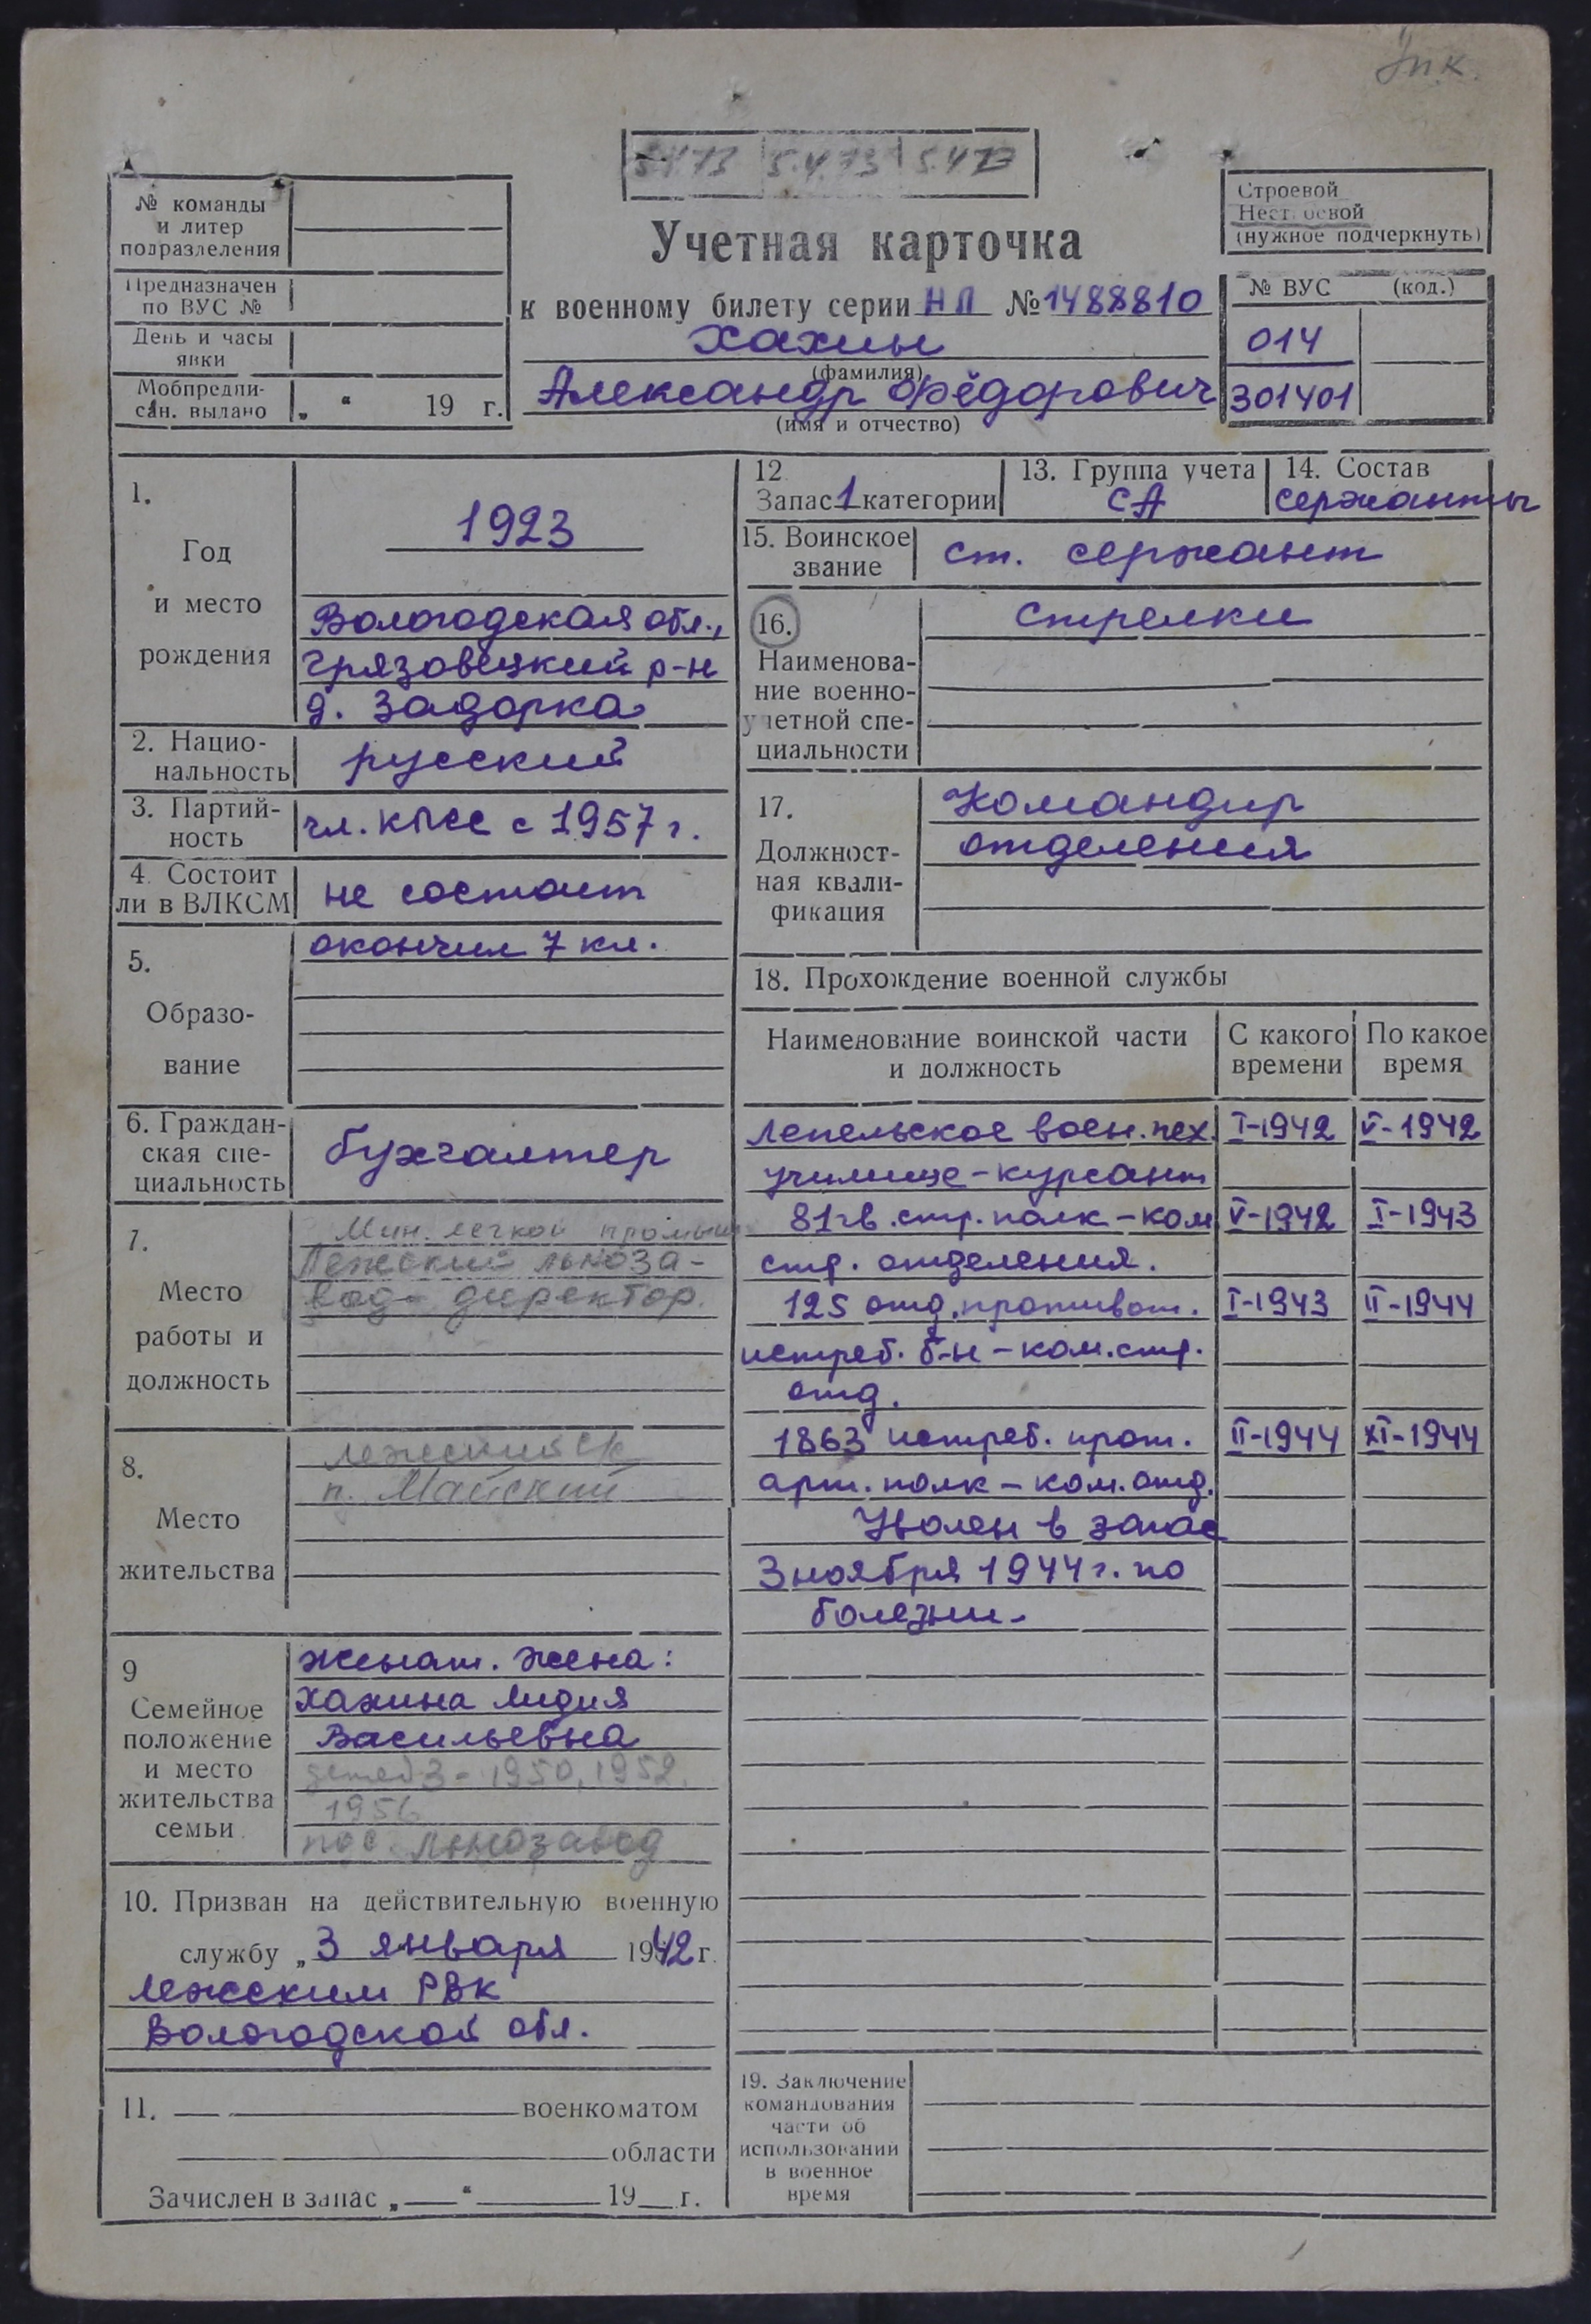 Упк.
5.4.73 5.4.73 5.4.73
№ команды
и литер
подразделения
Предназначен
по ВУС №
День и часы
явки
Мобпредпи-
сан. выдано „ “ 19 г.
Учетная карточка
к военному билету серии НЛ № 1488810
Хахин
(фамилия)
Александр Фёдорович
(имя и отчество)
Строевой
Нестроевой
(нужное подчеркнуть)
№ ВУС (код.)
014
301401
1.
Год
и место
рождения
1923
Вологодская обл.,
Грязовецкий р-н
д. Задорка
2. Нацио-
нальность
русский
3. Партий-
ность
чл. КПСС с 1957 г.
4. Состоит
ли в ВЛКСМ
не состоит
5.
Образо-
вание
окончил 7 кл.
6. Граждан-
ская спе-
циальность
бухгалтер
7.
Место
работы и
должность
Мин. легкой промыш
Лежский льноза-
вод - директор.
8.
Место
жительства
Лежский с/с
п. Майский
9
Семейное
положение
и место
жительства
семьи
женат. Жена:
Хахина Лидия
Васильевна
детей 3 - 1950, 1952,
1956
пос. Льнозавод
10. Призван на действительную военную
службу „3 января 1942 г.
Лежским РВК
Вологодской обл.
11. военкоматом
области
Зачислен в запас „ “ 19 г.
12
Запас 1 категории
13. Группа учета
СА
14. Состав
сержанты
15. Воинское
звание
ст. сержант
16.
Наименова-
ние военно-
учетной спе-
циальности
стрелки
17.
Должност-
ная квали-
фикация
Командир
отделения
18. Прохождение военной службы
Наименование воинской части
и должность
С какого
времени
По какое
время
Лепельское воен. пех. I-1942 V-1942
училище - курсант
81 гв. стр. полк - ком V-1942 I-1943
стр. отделения.
125 отд. противот. I-1943 II-1944
истреб. б-н - ком. стр.
отд.
1863 истреб. прот. II-1944 XI-1944
арт. полк - ком. отд.
Уволен в запас
3 ноября 1944 г. по
болезни.
19. Заключение
командования
части об
использовании
в военное
время